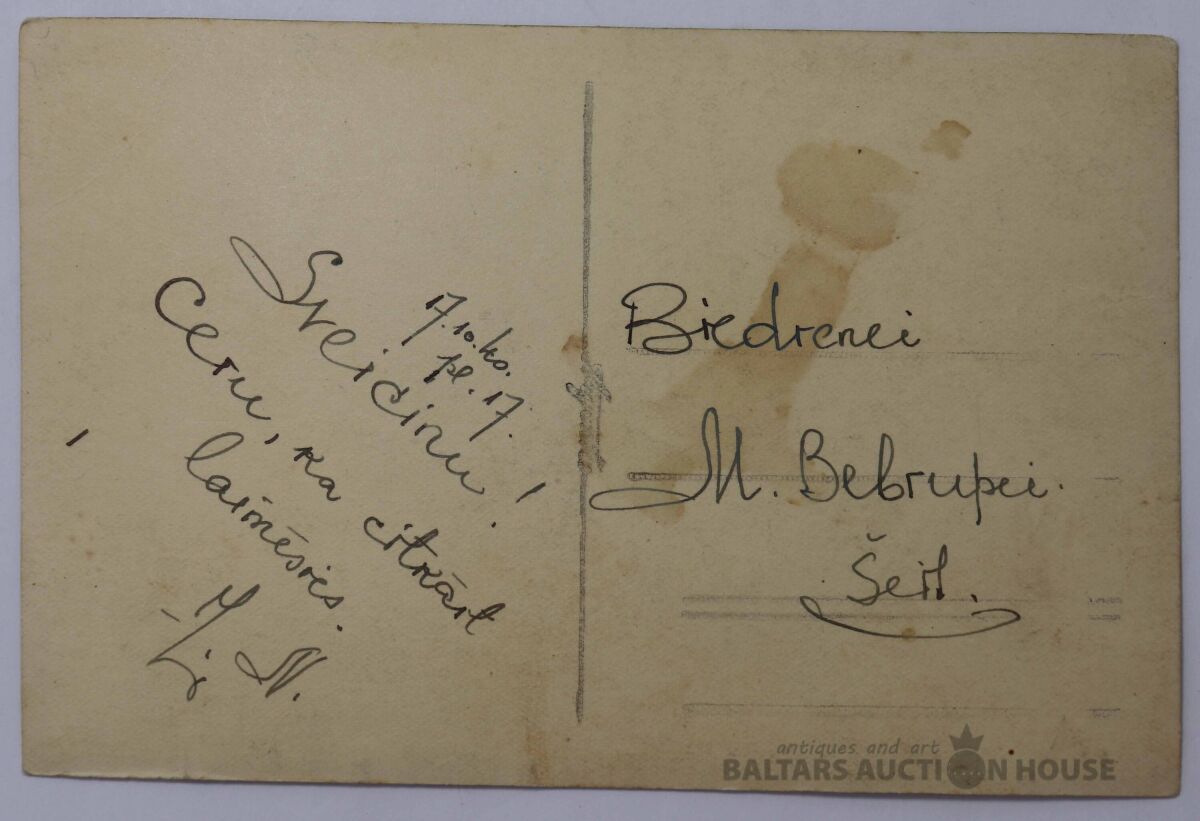 17.10.ko.
pl. 17.
Sveicinu!
Ceru, ka citkārt
laimēsies.
N.
Biedrenei
M. Bebrupei.
Šeit.
antiques and art
BALTARS AUCTION HOUSE